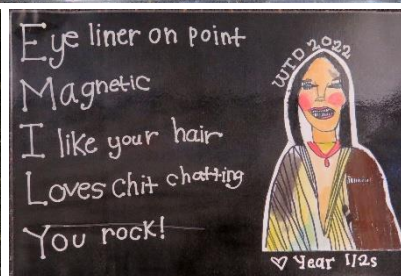 Eye liner on point
Magnetic
I like your hair
Loves chit chatting
You rock!
WTD 2022
♡ Year 1/2s